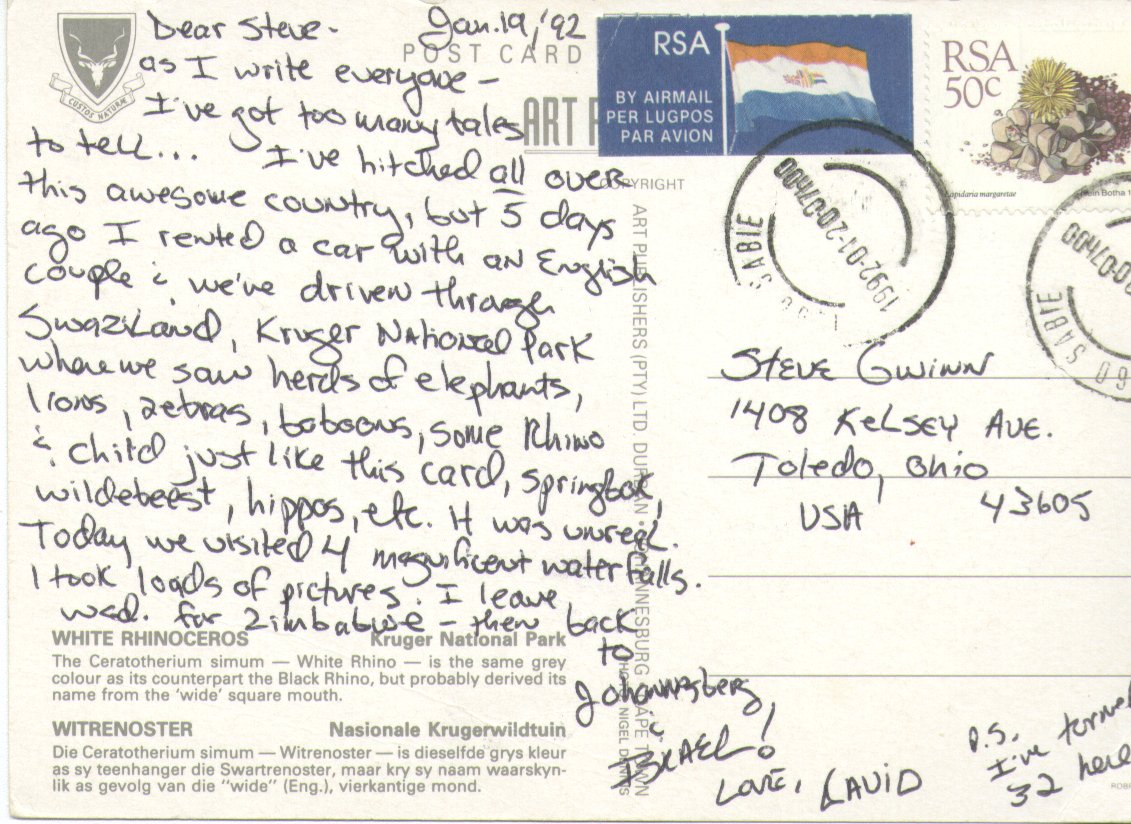 Dear Steve -
Jan. 19, '92
as I write everyone -
I've got too many tales
to tell... I've hitched all over
this awesome country, but 5 days
ago I rented a car with an English
couple & we've driven through
Swaziland, Kruger National Park
where we saw herds of elephants,
lions, zebras, baboons, some Rhino
& child just like this card, springbok,
wildebeest, hippos, etc. it was unreal.
Today we visited 4 magnificent waterfalls.
I took loads of pictures. I leave
wed. for Zimbabwe - then back
to
Johannesberg,
& ISRAEL!
LOVE, DAVID
P.S.
I've turned
32 here
CUSTOS NATURAE
POST CARD
ART
COPYRIGHT
ART PUBLISHERS (PTY) LTD. DURBAN • JOHANNESBURG CAPE TOWN
PHOTO NIGEL DENNIS
WHITE RHINOCEROS Kruger National Park
The Ceratotherium simum — White Rhino — is the same grey
colour as its counterpart the Black Rhino, but probably derived its
name from the 'wide' square mouth.
WITRENOSTER Nasionale Krugerwildtuin
Die Ceratotherium simum — Witrenoster — is dieselfde grys kleur
as sy teenhanger die Swartrenoster, maar kry sy naam waarskyn-
lik as gevolg van die "wide" (Eng.), vierkantige mond.
RSA
BY AIRMAIL
PER LUGPOS
PAR AVION
RSA
50c
Lapidaria margaretae
Botha
SABIE
1992-01-20-07H00
SABIE
0-07H00
STEVE GWINN
1408 KELSEY AVE.
Toledo, Ohio
USA 43605